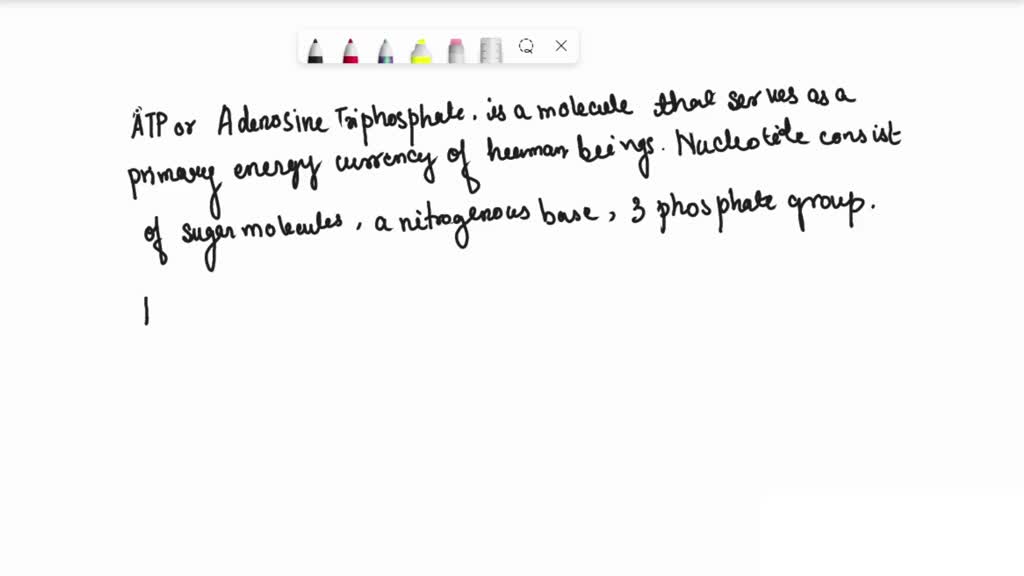 ATP or Adenosine Triphosphate. is a molecule that serves as a
primary energy currency of human beings. Nucleotide consist
of sugar molecules, a nitrogenous base, 3 phosphate group.